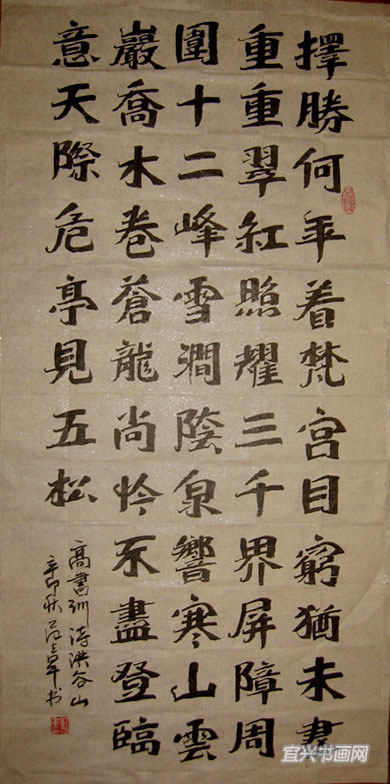 擇勝何年着梵宮目窮猶未盡
重重翠紅照耀三千界屏障周
團十二峰雪澗陰泉響寒山雲
巖喬木卷蒼龍尚怜不盡登臨
意天際危亭見五松
高書訓游洪谷山
辛卯秋 书
宜兴书画网